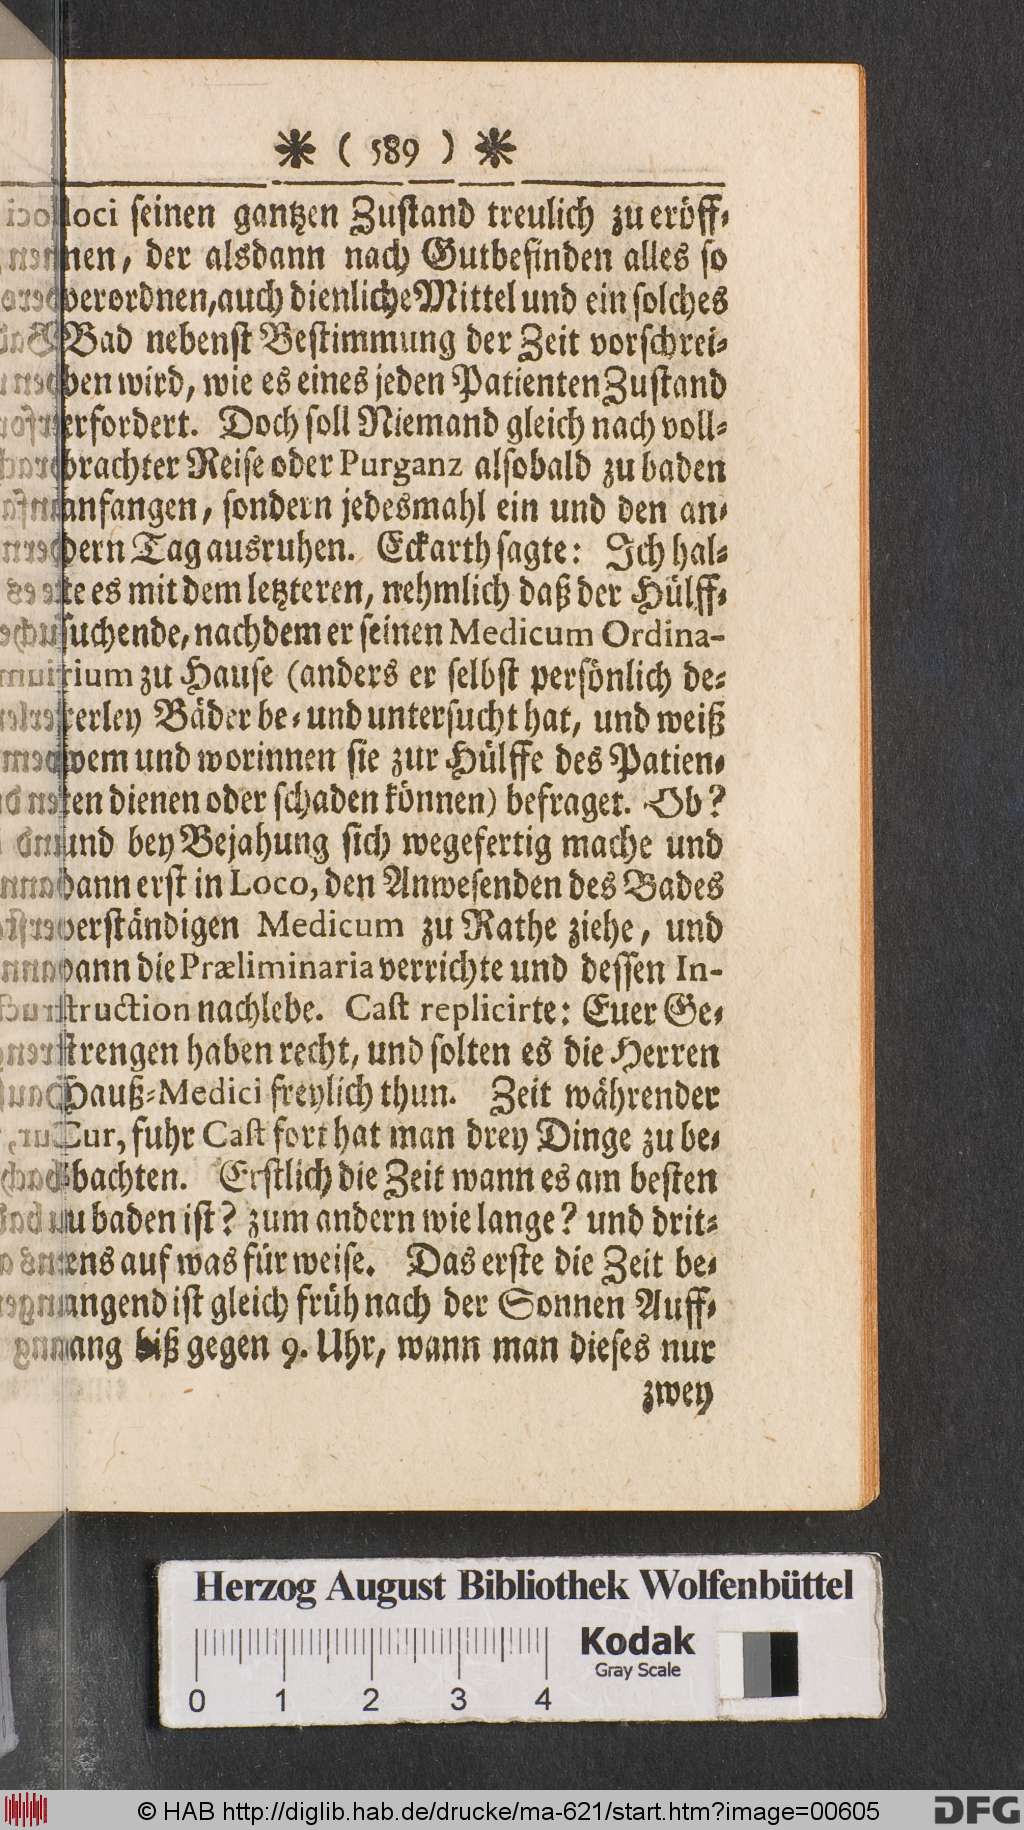 * ( 589 ) *
loci seinen gantzen Zustand treulich zu eröff-
nen, der alsdann nach Gutbefinden alles so
verordnen, auch dienliche Mittel und ein solches
Bad nebenst Bestimmung der Zeit vorschrei-
ben wird, wie es eines jeden Patienten Zustand
erfordert. Doch soll Niemand gleich nach voll-
brachter Reise oder Purganz alsobald zu baden
anfangen, sondern jedesmahl ein und den an-
dern Tag ausruhen. Eckarth sagte: Ich hal-
te es mit dem letzteren, nehmlich daß der Hülff-
suchende, nachdem er seinen Medicum Ordina-
rium zu Hause (anders er selbst persönlich de-
rerley Bäder be- und untersucht hat, und weiß
wem und worinnen sie zur Hülffe des Patien-
ten dienen oder schaden können) befraget. Ob?
und bey Bejahung sich wegefertig mache und
dann erst in Loco, den Anwesenden des Bades
verständigen Medicum zu Rathe ziehe, und
dann die Præliminaria verrichte und dessen In-
struction nachlebe. Cast replicirte: Euer Ge-
strengen haben recht, und solten es die Herren
Hauß-Medici freylich thun. Zeit währender
Cur, fuhr Cast fort hat man drey Dinge zu be-
bachten. Erstlich die Zeit wann es am besten
zu baden ist? zum andern wie lange? und drit-
tens auf was für weise. Das erste die Zeit be-
langend ist gleich früh nach der Sonnen Auff-
gang biß gegen 9. Uhr, wann man dieses nur
zwey
Herzog August Bibliothek Wolfenbüttel
Kodak
Gray Scale
0 1 2 3 4
© HAB http://diglib.hab.de/drucke/ma-621/start.htm?image=00605
DFG